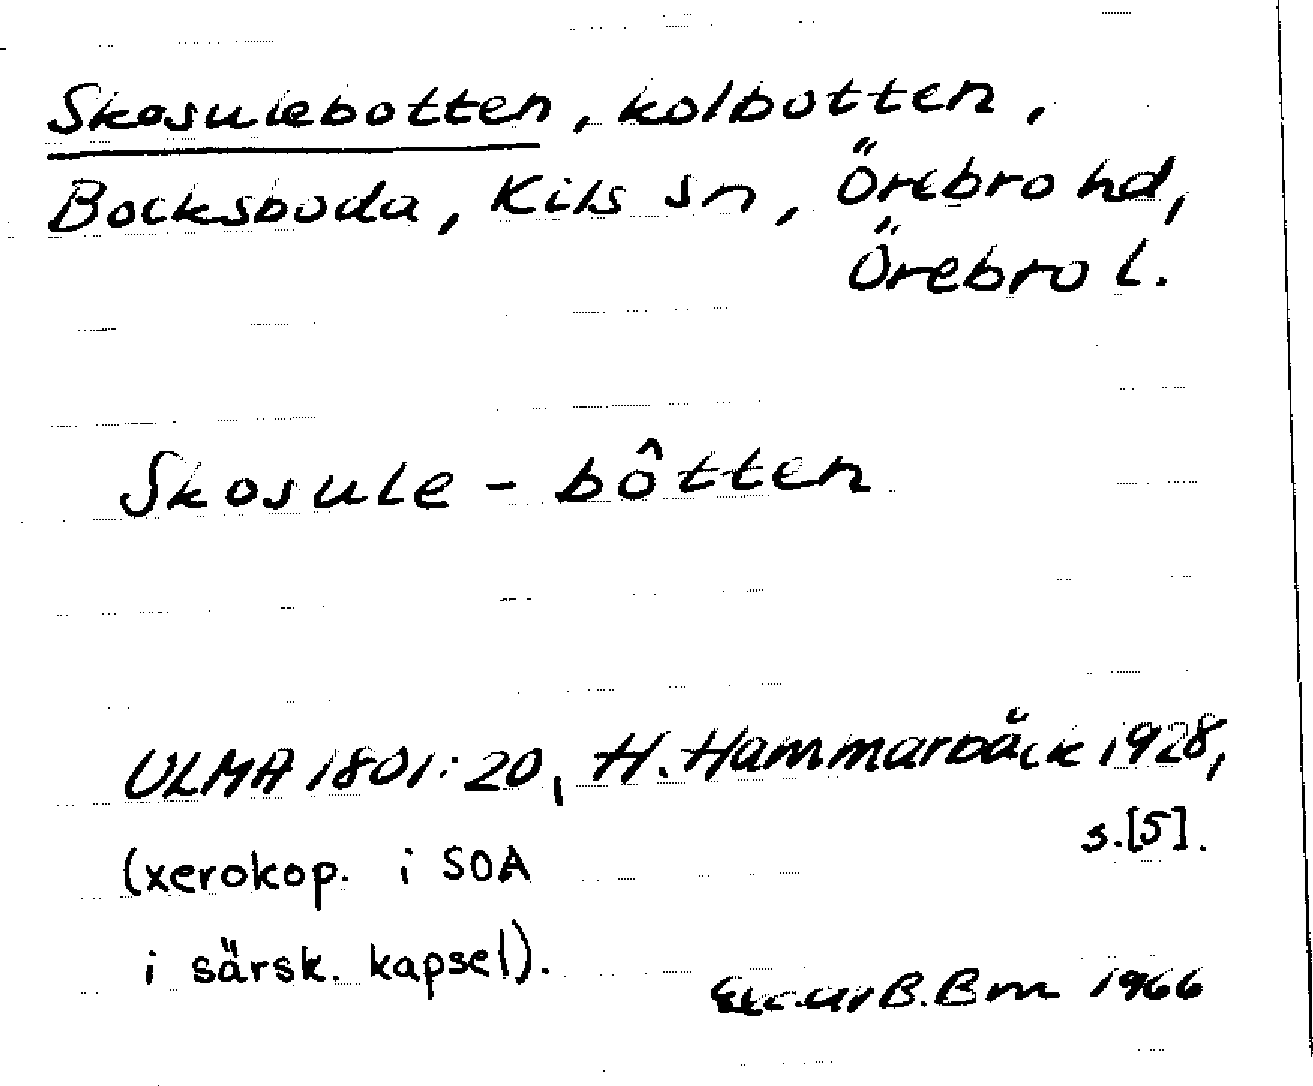 Skosulebotten, kolbotten,
Bocksboda, Kils sn, Örebro hd,
Örebro l.
Skosule - bôtten
ULMA 1801:20, H. Hammarbäck 1928,
s.[5].
(xerokop. i SOA
i särsk. kapsel).
B. 1966